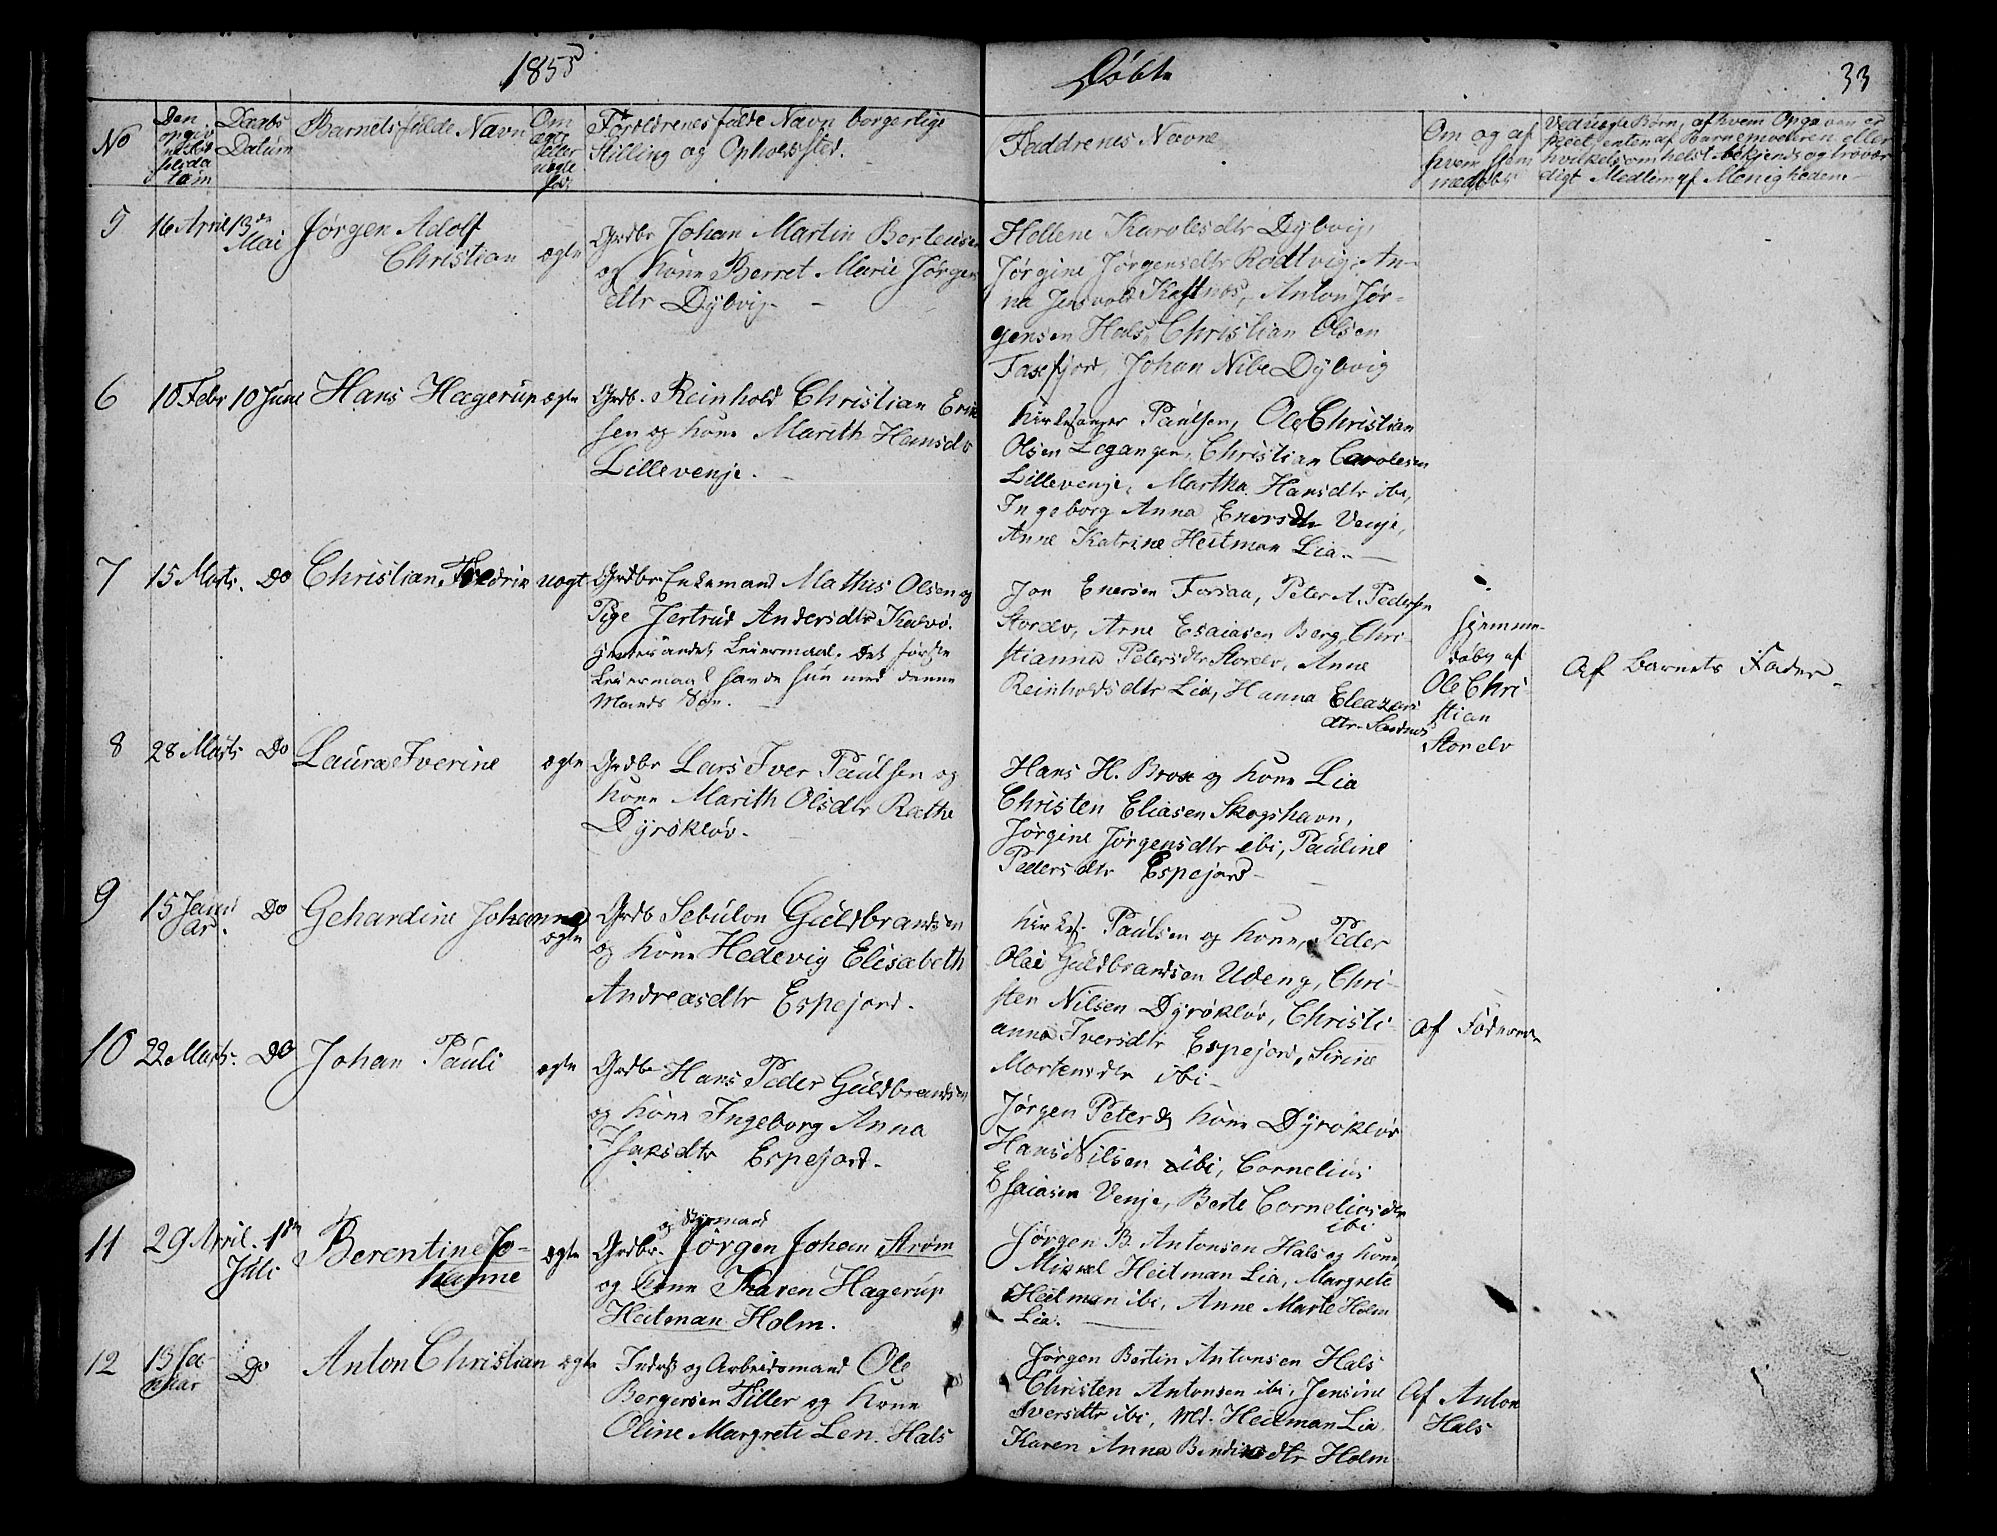 1855
Døbte
33
No
Den opgivne Fødselsdatum
Daabs Datum
Barnets fulde Navn
Om ægte eller uægte fød.
Forældrenes fulde Navn borgerlige
Stilling og Opholdssted.
Faddrenes Navne
Om og af hvem hjemmedøbt
5 16 April 13de Mai Jørgen Adolf
Christian ægte
Grdbr Johan Martin Bertensen
og Kone Berret Marie Jørgens
dtr Dybvig.
Hellene Karolesdtr Dybvig,
Jørgine Jørgensdtr Rødtvig, An-
na Jensvold Kastnæs, Anton Jør-
gensen Hals, Christian Olsen
Faxefjord, Johan Nibe Dybvig
6 10 Febr 10 June Hans Hagerup ægte
Grdb. Reinhold Christian Erik
sen og Kone Marith Hansdr
Lillevenje.
Kirkesanger Paulsen, Ole Christian
Olsen Legangen, Christian Carolesen
Lillevenje, Martha Hansdtr ibi,
Ingeborg Anna Enersdtr Venje,
Anne Katrine Heitman Lia.
7 15 Marts. Do Christian Fredrik uægt
Grdbr Enkemand Mathis Olsen og
Pige Jertrud Andersdtr Kalvø.
hendes andet Leiermaal. Det første
Leiermaal havde hun med denne
Mands Søn.
Jon Enersen Forsaa, Peter A. Pedersen
Storelv, Arne Esaiasen Berg, Chri-
stianna Petersdtr Storelv, Anne
Reinholdsdtr Lia, Hanna Eleazars
dtr Sandnes
Hjemme-
døbt af
Ole Chri-
stian
Storelv
Af Barnets Fader
8 28 Marts Do Laura Iverine ægte
Grdbr Lars Iver Paulsen og
Kone Marith Olsdtr Rathe
Dyrøkløv.
Hans H. Brox og Kone Lia
Christen Eliasen Skogshavn,
Jørgine Jørgensdtr ibi, Pauline
Pedersdtr Espejord
9 15 Janu
ar. Do Gehardine Johanne
ægte
Grdb Sebulon Guldbrandsen
og Kone Hedevig Elisabeth
Andreasdtr Espejord.
Kirkes. Paulsen og Kone, Peder
Olai Guldbrandsen Udeng, Chri-
sten Nilsen Dyrøkløv, Christi-
anna Iversdtr Espejord, Sirine
Mortensdtr ibi
10 22 Marts. Do Johan Pauli ægte
Grdbr Hans Peder Guldbrandsen
og Kone Ingeborg Anna
Isaksdtr Espejord.
Af Faderen
Jørgen Peter og Kone Dyrøkløv
Hans Nilsen ibi, Cornelius
Esaiasen Venje, Berte Corneliusdtr
ibi
11 29 April. 1ste
Juli Berentine Jo-
hanne ægte
og Styrmand
Grdbr. Jørgen Johan Strøm
og Kone Karen Hagerup
Heitman Holm.
Jørgen B. Antonsen Hals og Kone,
Mikael Heitman Lia, Margrete
Heitman ibi, Anne Marte Holm
Lia.
12 13 Ja-
nuar Do Anton Christian ægte
Inderst og Arbeidsmand Ole
Bergersen Tiller og Kone
Oline Margrete Len. Hals
Jørgen Bertin Antonsen Hals
Christen Antonsen ibi, Jensine
Iversdtr ibi, Md. Heitman Lia
Karen Anna Bendixsdtr Holm
Af Anton
Hals